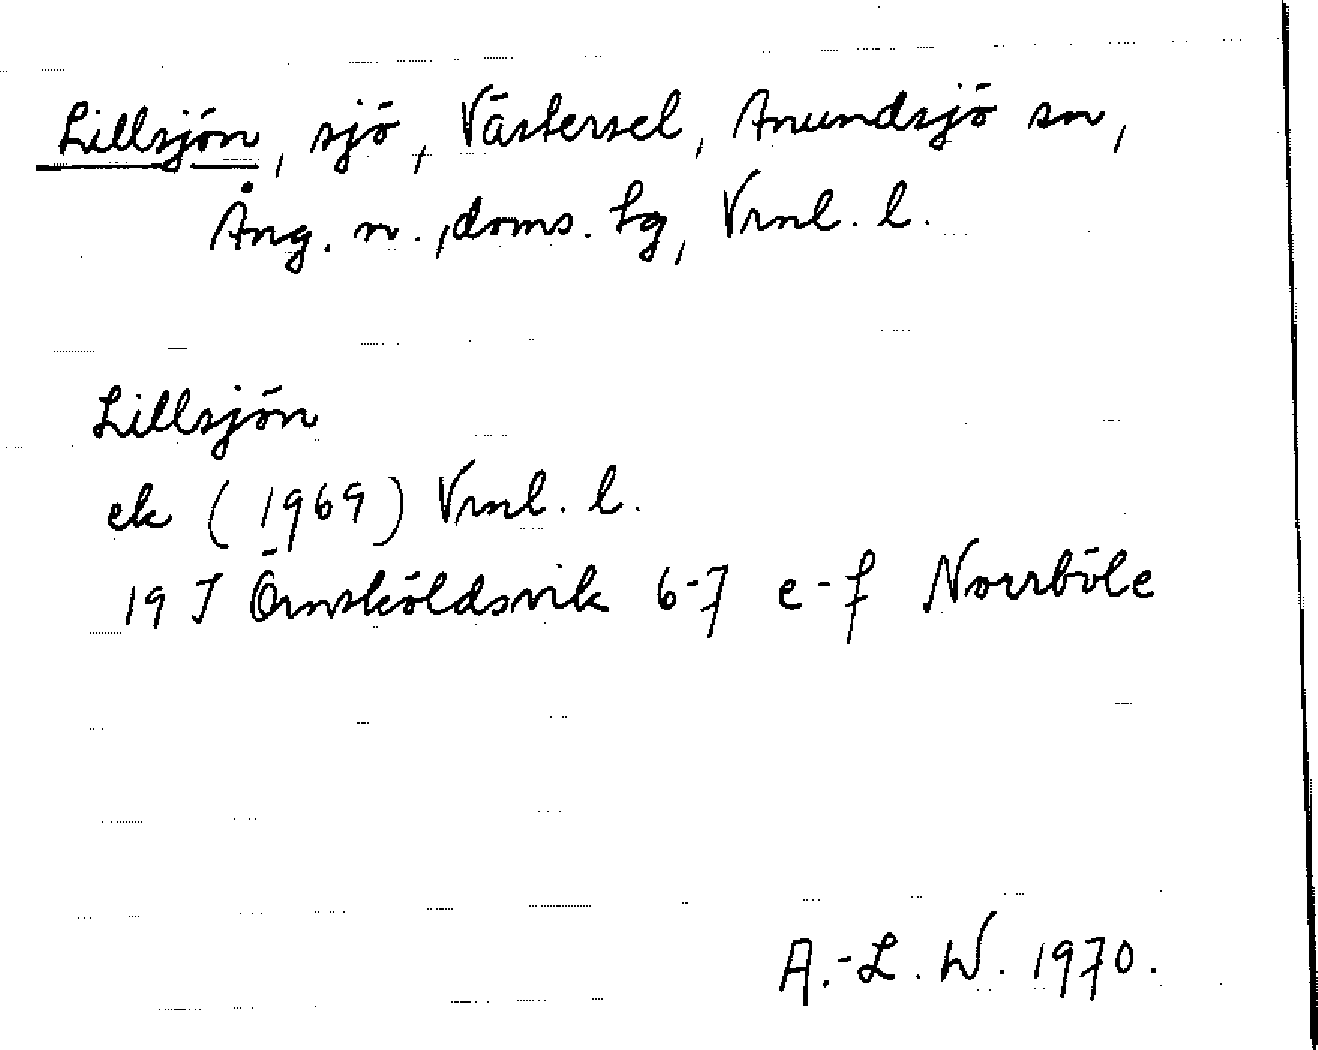 Lillsjön, sjö, Västersel, Anundsjö sn,
Ång. n., doms. hg, Vrnl. l.
Lillsjön
ek (1969) Vrnl. l.
19 J Örnsköldsvik 6-7 e-f Norrböle
A.-L. W. 1970.